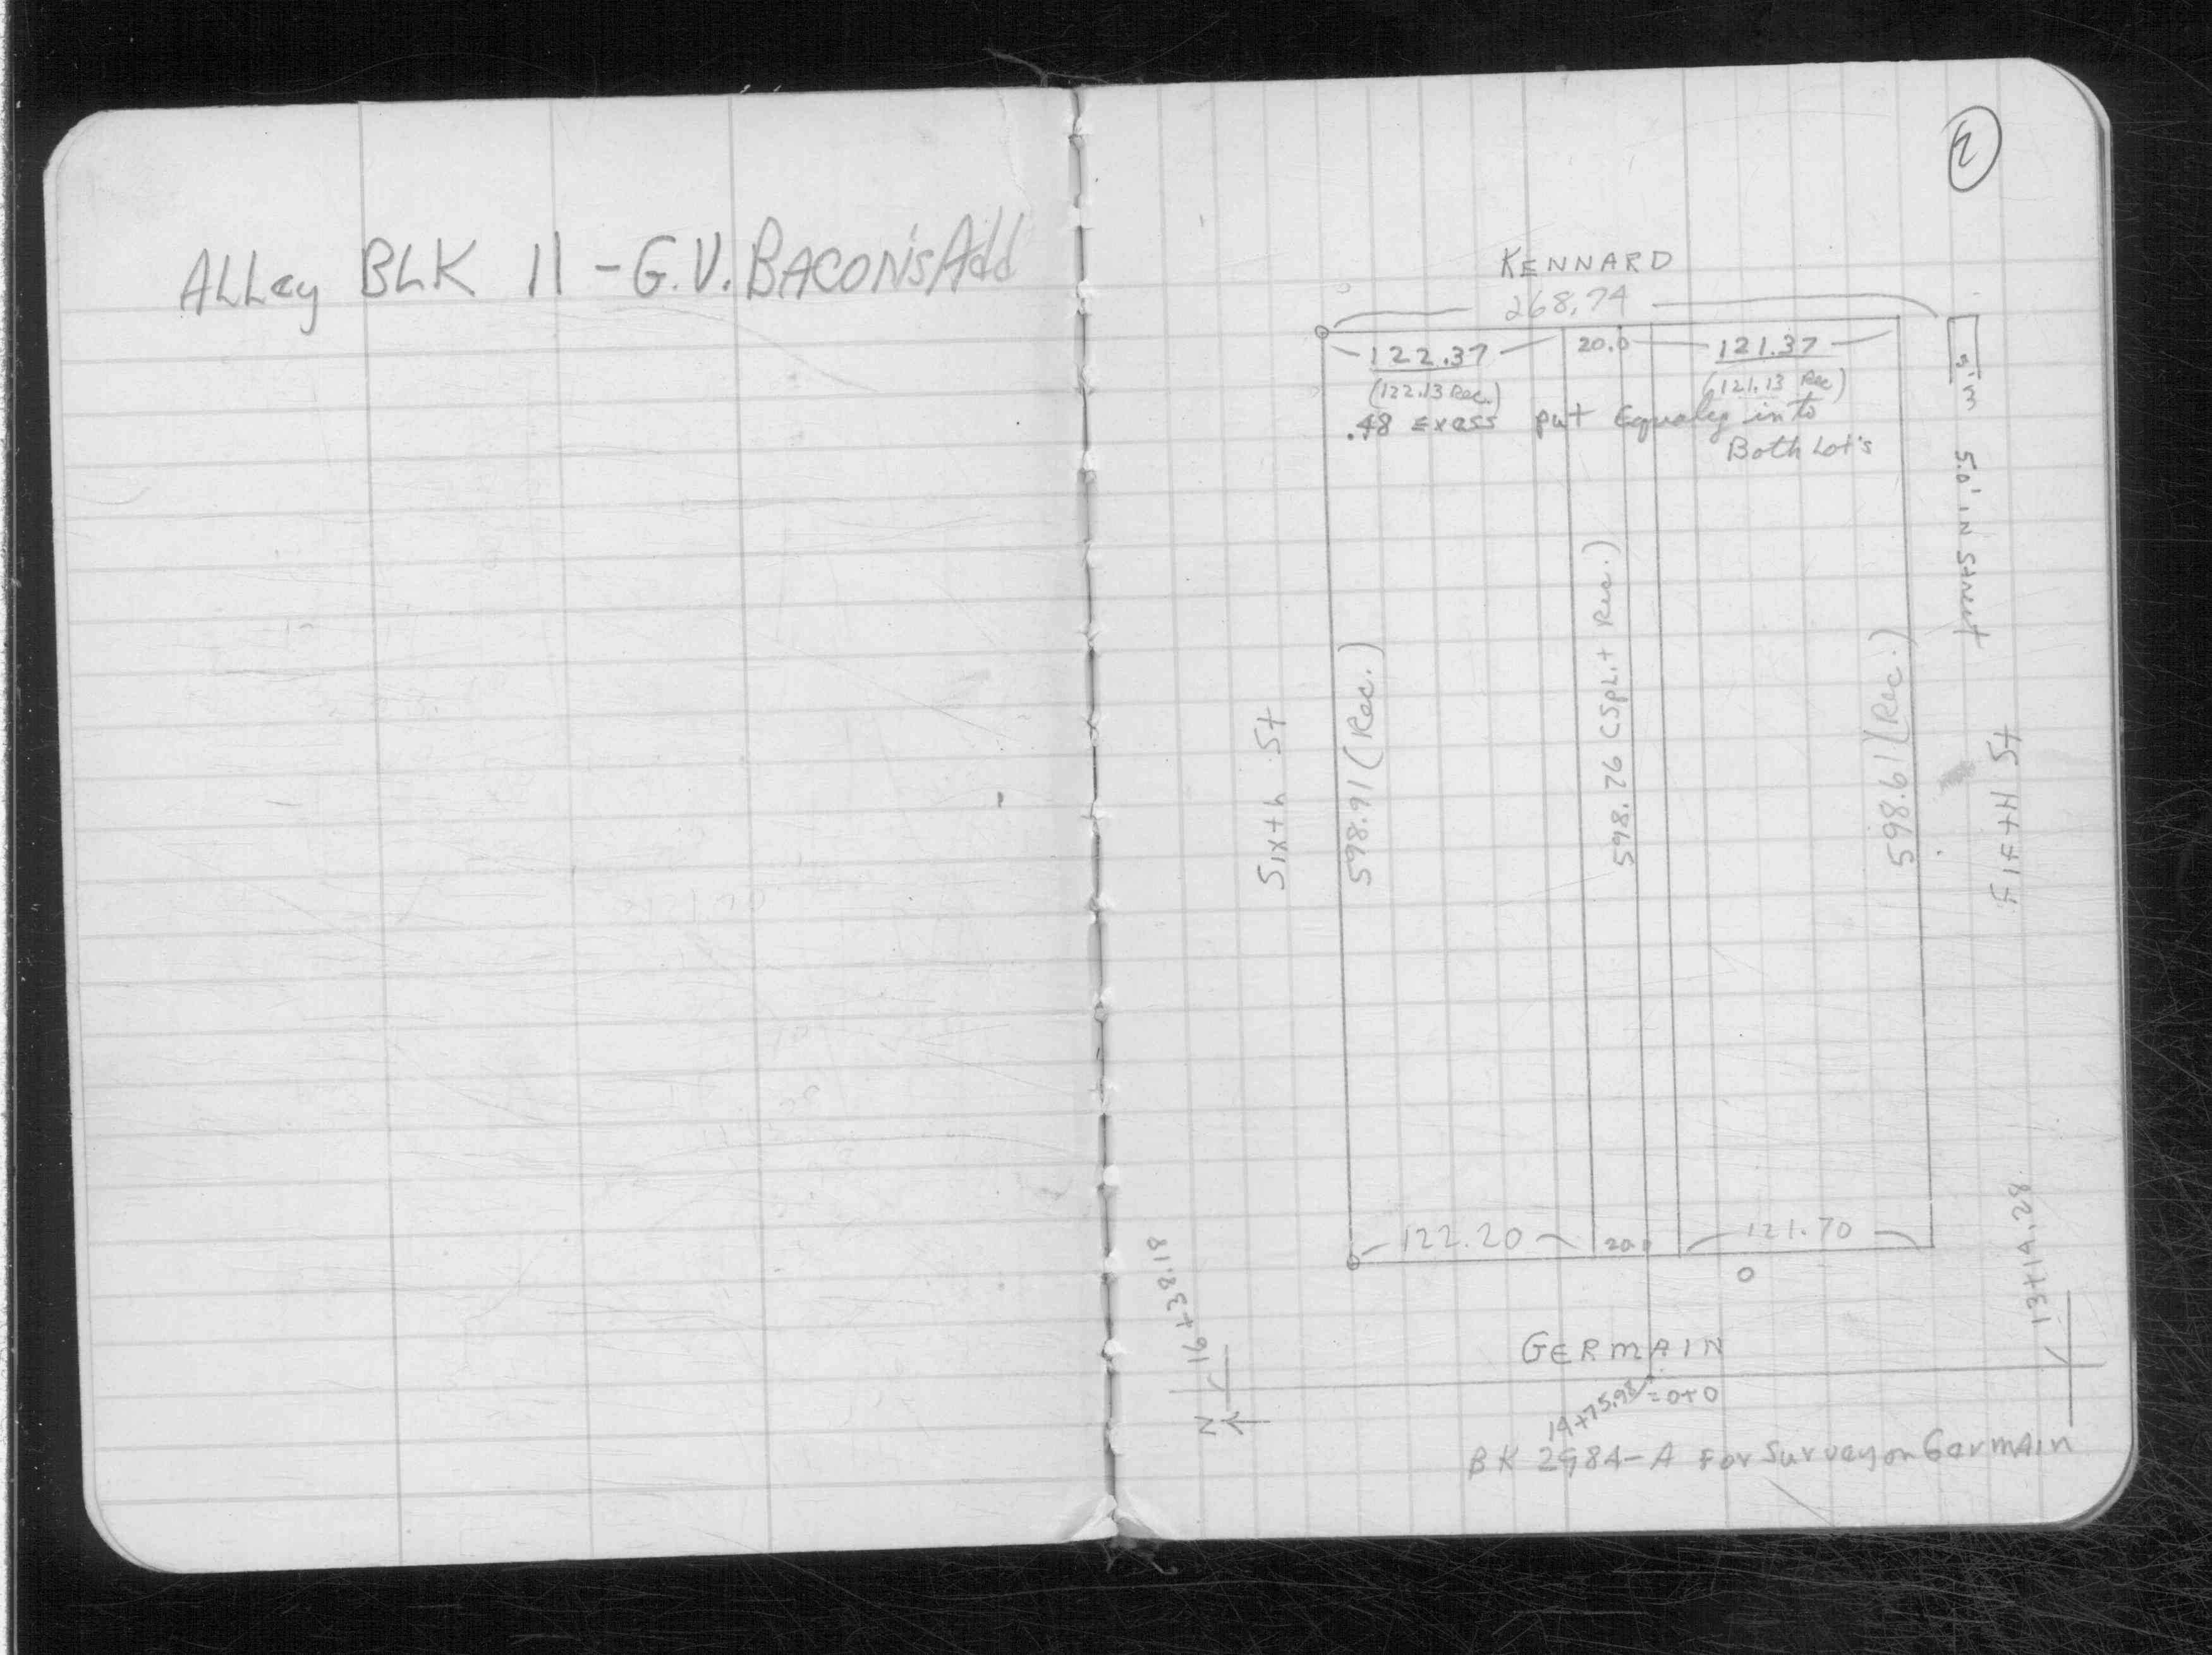 ALLey BLK 11 - G.V. BACON'S Add
2
KENNARD
268.74
122.37
20.0
121.37
(122.13 Rec.)
(121.13 Rec)
.48 Exess put Equaley into
Both Lot's
5.0' IN Street
Sixth St
598.91 (Rec.)
598.76 (SpLit Rec.)
598.61 (Rec.)
FIFtH St
122.20
20.0
121.70
16+38.18
13+14.28
GERMAIN
14+75.98 = 0+0
N
BK 2984-A For Survey on Germain